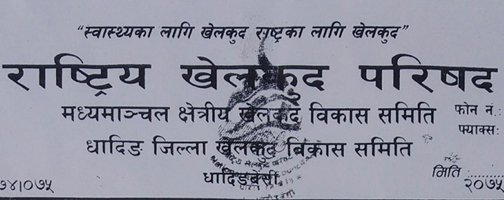 "स्वास्थ्यका लागि खेलकुद राष्ट्रका लागि खेलकुद"
राष्ट्रिय खेलकुद परिषद
मध्यमाञ्चल क्षेत्रीय खेलकुद विकास समिति फोन नं.:
धादिङ जिल्ला खेलकुद विकास समिति फ्याक्स:
धादिङबेसी
७४।०७५ मिति :........२०७५